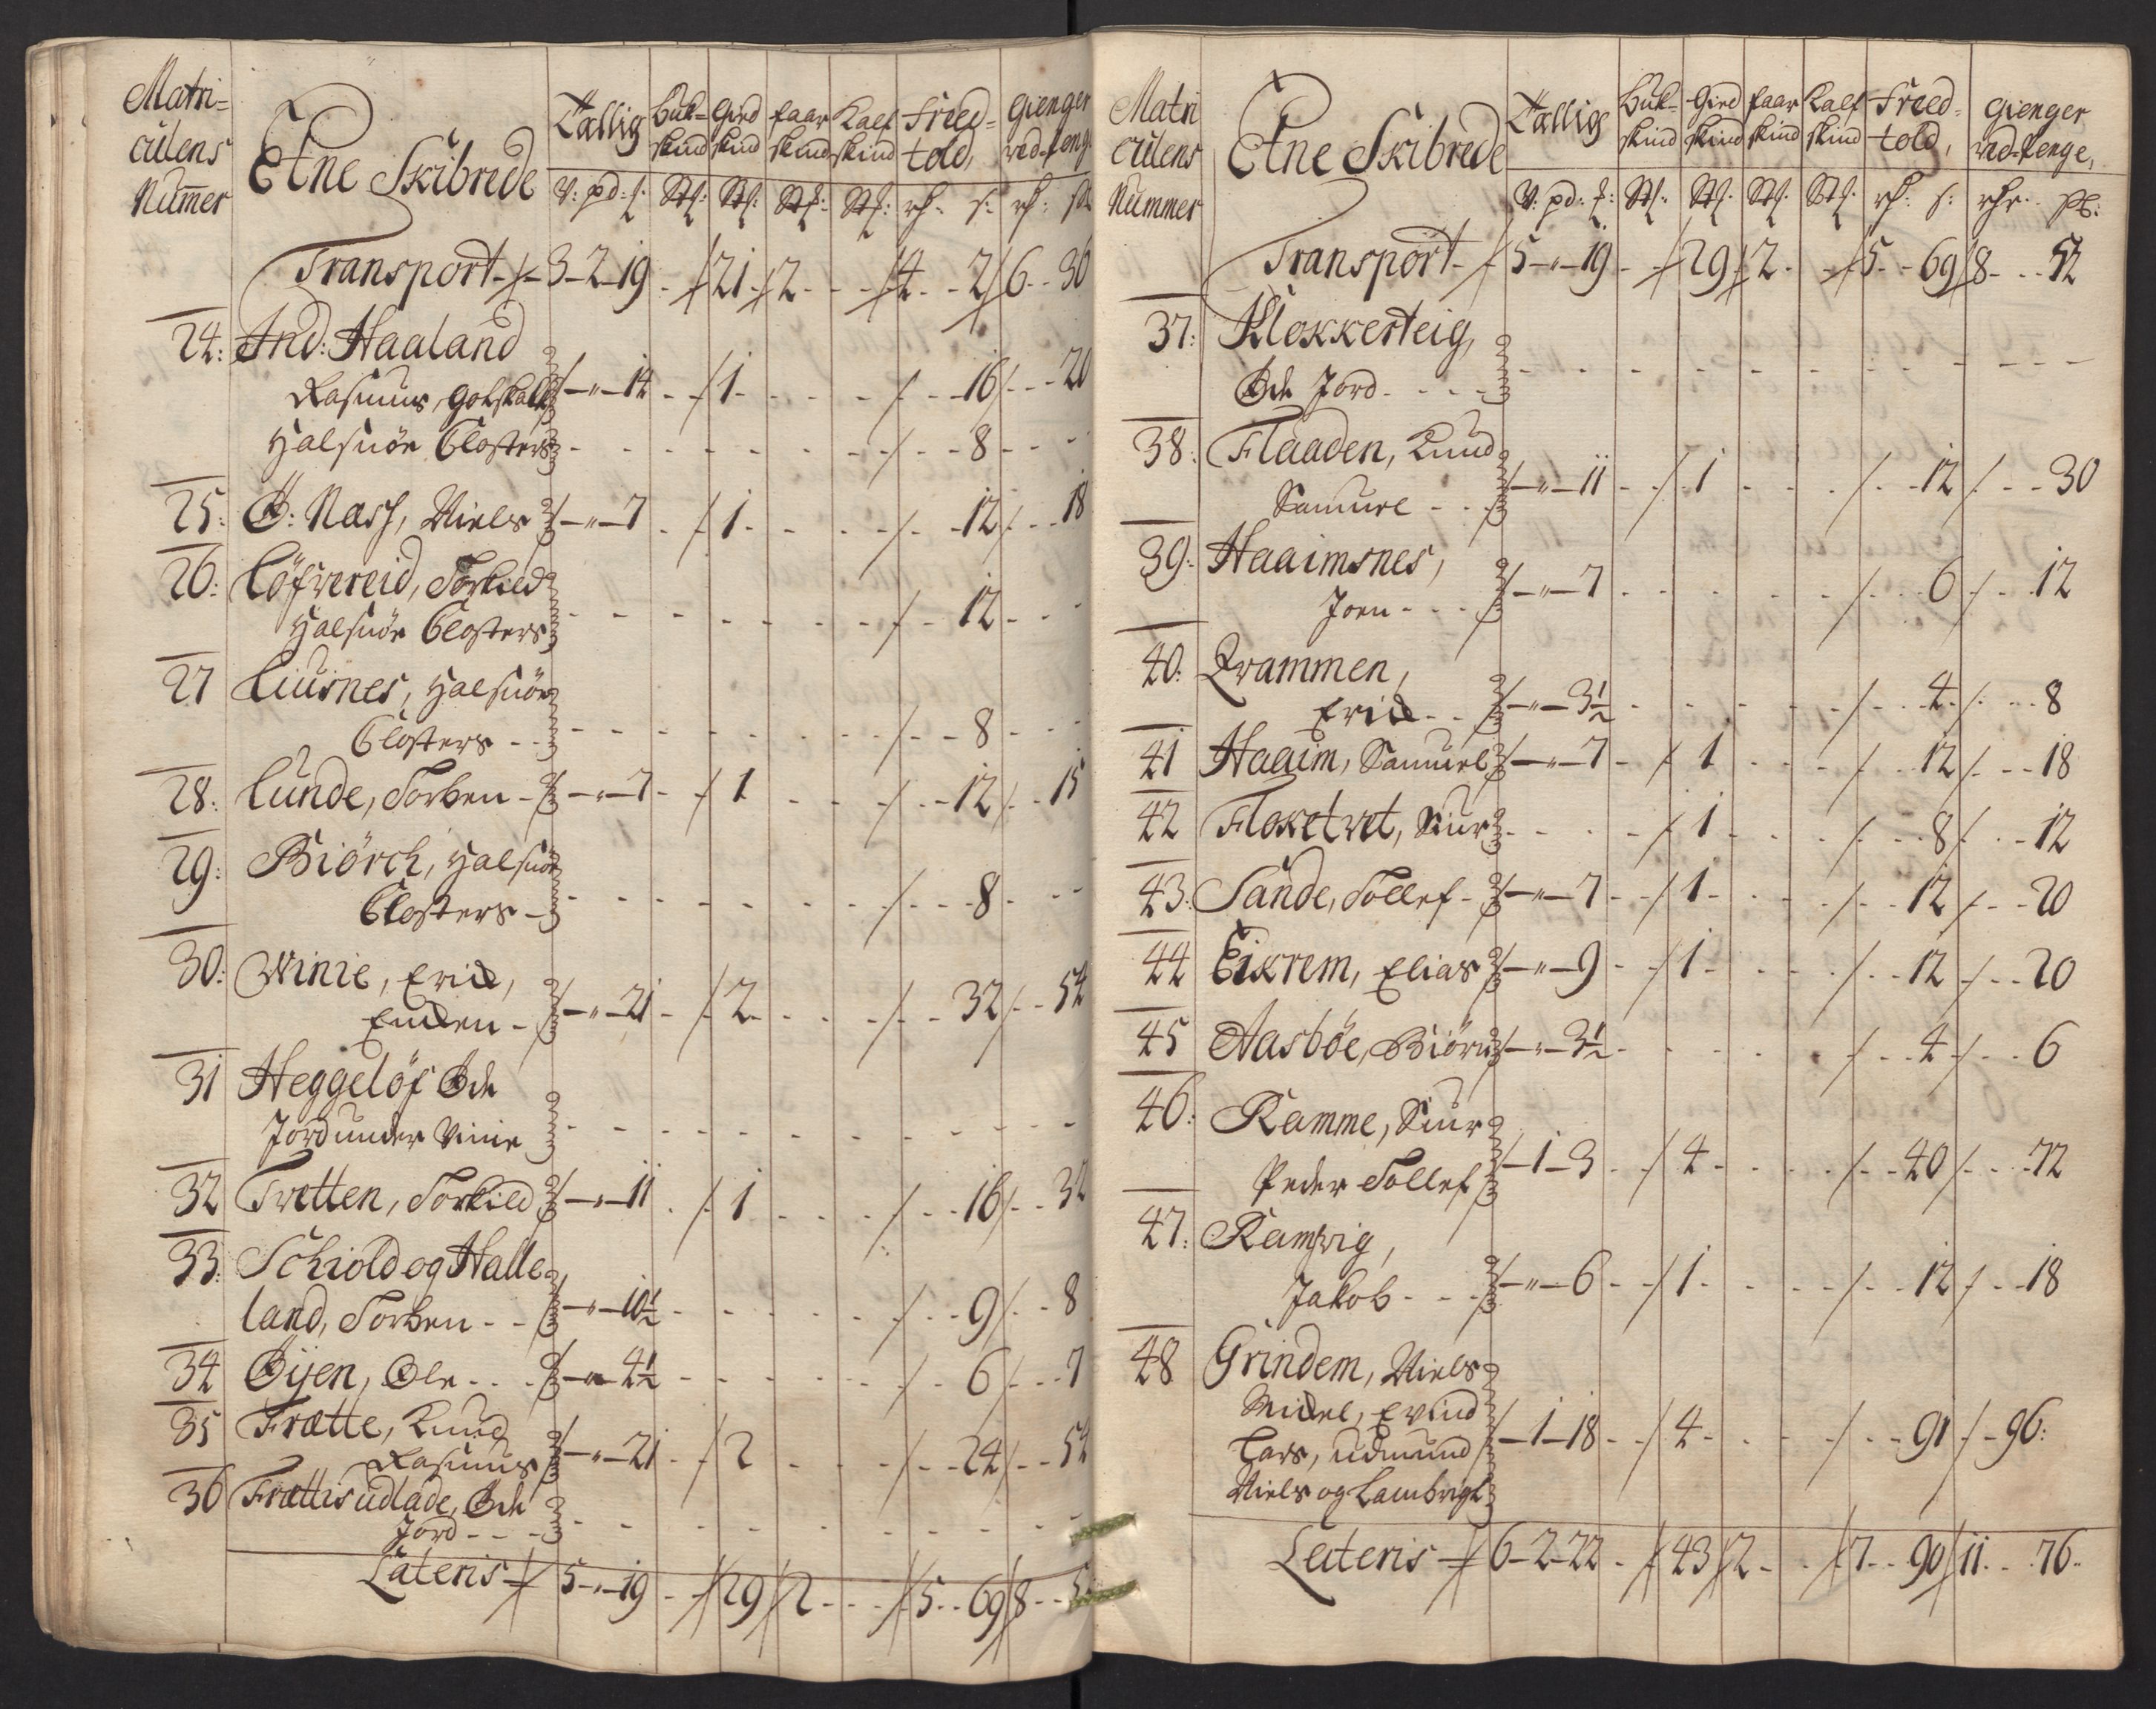 Matri= Etne Skibrede Tællig Buk= Gied faar Kalf Freed= Gienger
culens skind skind skind skind told, ved-penge
Nummer V: pd: f: Stk: Stk: Stk: Stk: rh: s: rh: sk
Transport - 3 - 2 - 19 21 2 4 2 6 30
24: Ind: Haaland
Rasmus, Gotskalk - " - 14 1 16 20
Halsnöe Closters 8
25: Ø: Næss, Niels - " - 7 1 12 18
26: Löfvereid, Torkild
Halsnöe Closters 12
27 Liusnes, Halsnöe
Closters 8
28: Lunde, Torben - " - 7 1 12 15
29: Biörch, Halsnöe
Closters 8
30: Winie, Erich,
Endren - " - 21 2 32 54
31 Heggelöf Øde
Jord under Vinie
32 Tvetten, Torkild - " - 11 1 16 32
33: Schiold og Halle
land, Torben - " - 10½ 9 8
34 Öijen, Ole - " - 4½ 6 7
35 Frætte, Knud
Rasmus - " - 21 2 24 54
36 Frættis udlade, Øde
Jord
Lateris 5 - " - 19 29 2 5 69 8
Matri Etne Skibrede Tællig Buk= Gied faar Kalf Freed= Gienger
culens skind skind skind skind told, ved-Penge,
Nummer V: pd: f: Stk: Stk: Stk: Stk: rh: s: rhr: sk:
Transport 5 - " - 19 29 2 5 69 8 52
37: Klokkerteig,
Øde Jord
38: Flaaden, Knud
Samuel - " - 11 1 12 30
39: Haaimsnes,
Joen - " - 7 6 12
40: Qvammen,
Erich - " - 3½ 4 8
41 Haaim, Samuel - " - 7 1 12 18
42 Floketvet, Siur 1 8 12
43: Sande, Tollef - " - 7 1 12 20
44 Eikrem, Elias - " - 9 1 12 20
45 Aasböe, Biörn - " - 3½ 4 6
46: Ramme, Siur
Peder Tollef - 1 - 3 4 40 72
47: Ramsvig,
Jakob - " - 6 1 12 18
48 Grindem, Niels
Michel, Evind
Lars, Udmund - 1 - 18 4 91 96:
Niels og Lambrigt
Lateris 6 - 2 - 22 43 2 7 90 11 76